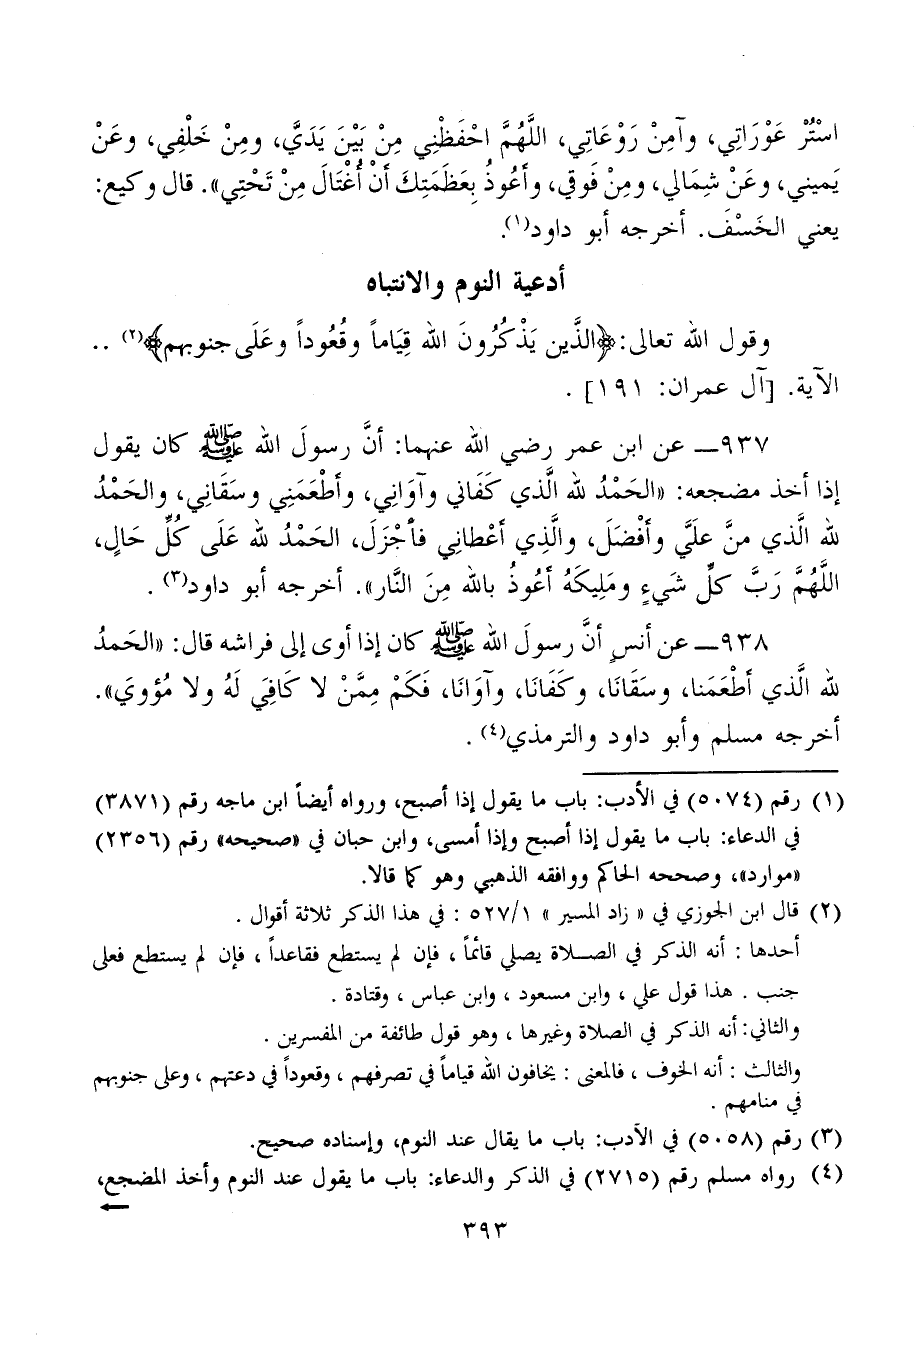 اسْتُرْ عَوْرَاتِي، وآمِنْ رَوْعَاتِي، اللَّهُمَّ احْفَظْنِي مِنْ بَيْنَ يَدَيَّ، ومِنْ خَلْفِي، وعَنْ
يَميني، وعَنْ شِمَالي، ومِنْ فَوقي، وأعُوذُ بِعَظَمَتِكَ أنْ أُغْتَالَ مِنْ تَحْتِي». قال وكيع:
يعني الخَسْفَ. أخرجه أبو داود(١).
أدعية النوم والانتباه
وقول الله تعالى: ﴿الذَّين يَذْكُرُونَ الله قِيَاماً وقُعُوداً وعَلَى جنوبهم﴾(٢) ..
الآية. [آل عمران: ١٩١] .
٩٣٧ـ عن ابن عمر رضي الله عنهما: أنَّ رسولَ الله ﷺ كان يقول
إذا أخذ مضجعه: «الحَمْدُ لله الَّذي كَفَاني وآوَانِي، وأطْعَمَنِي وسَقَانِي، والحَمْدُ
لله الَّذي منَّ علَيَّ وأفْضَلَ، والَّذِي أعْطانِي فأجْزَلَ، الحَمْدُ لله عَلَى كُلِّ حَالٍ،
اللَّهُمَّ رَبَّ كلِّ شَيءٍ ومَلِيكَهُ أعُوذُ بالله مِنَ النَّار». أخرجه أبو داود(٣) .
٩٣٨ـ عن أنسٍ أنَّ رسولَ الله ﷺ كان إذا أوى إلى فراشه قال: «الحَمدُ
لله الَّذي أطْعَمَنا، وسَقَانَا، وكَفَانَا، وآوَانَا، فَكَمْ مِمَّنْ لا كَافِيَ لَهُ ولا مُؤويَ».
أخرجه مسلم وأبو داود والترمذي(٤) .
(١) رقم (٥٠٧٤) في الأدب: باب ما يقول إذا أصبح، ورواه أيضاً ابن ماجه رقم (٣٨٧١)
في الدعاء: باب ما يقول إذا أصبح وإذا أمسى، وابن حبان في «صحيحه» رقم (٢٣٥٦)
«موارد»، وصححه الحاكم ووافقه الذهبي وهو كما قالا.
(٢) قال ابن الجوزي في « زاد المسير » ٥٢٧/١ : في هذا الذكر ثلاثة أقوال .
أحدها : أنه الذكر في الصلاة يصلي قائماً ، فإن لم يستطع فقاعداً ، فإن لم يستطع فعلى
جنب . هذا قول علي ، وابن مسعود ، وابن عباس ، وقتادة .
والثاني: أنه الذكر في الصلاة وغيرها ، وهو قول طائفة من المفسرين .
والثالث : أنه الخوف ، فالمعنى : يخافون الله قياماً في تصرفهم ، وقعوداً في دعتهم ، وعلى جنوبهم
في منامهم .
(٣) رقم (٥٠٥٨) في الأدب: باب ما يقال عند النوم، وإسناده صحيح.
(٤) رواه مسلم رقم (٢٧١٥) في الذكر والدعاء: باب ما يقول عند النوم وأخذ المضجع،
٣٩٣